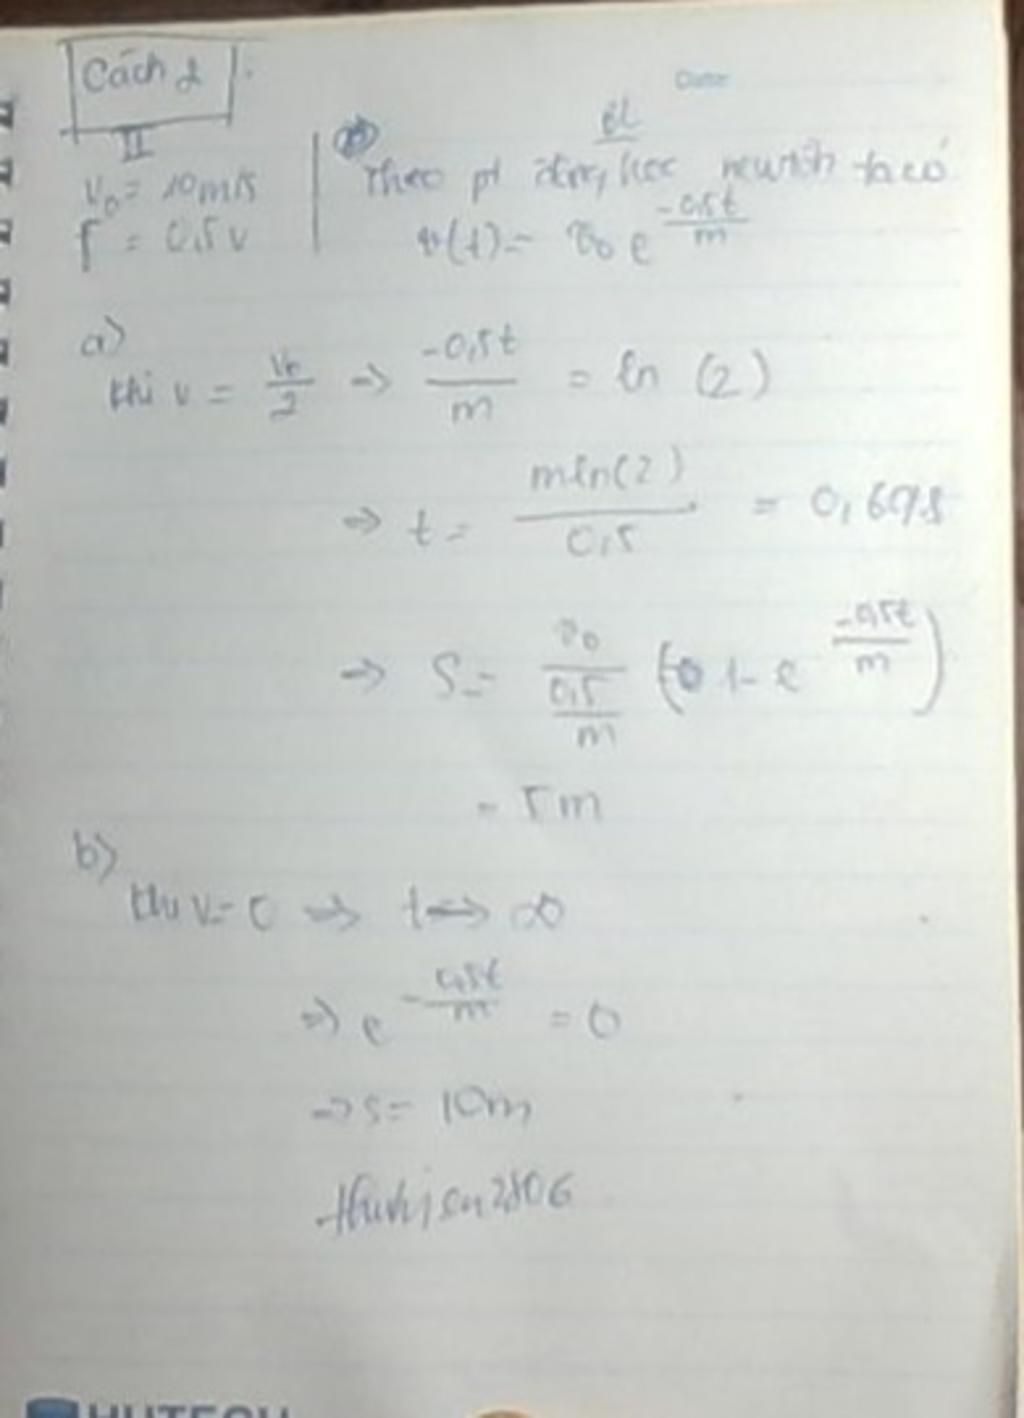 Cách 2
Date
II
v₀ = 10m/s
f = 0,5v
Theo pt động học newtơn ta có
v(t) = v₀ e^(-0,5t/m)
a)
khi v = v₀/2 → -0,5t/m = ln (2)
⇒ t = mln(2)/0,5 = 0,69s
⇒ S = v₀/(0,5/m) (1 - e^(-0,5t/m))
= 5m
b)
khi v = 0 ⇒ t → ∞
⇒ e^(-0,5t/m) = 0
→ s = 10m
HUTECH